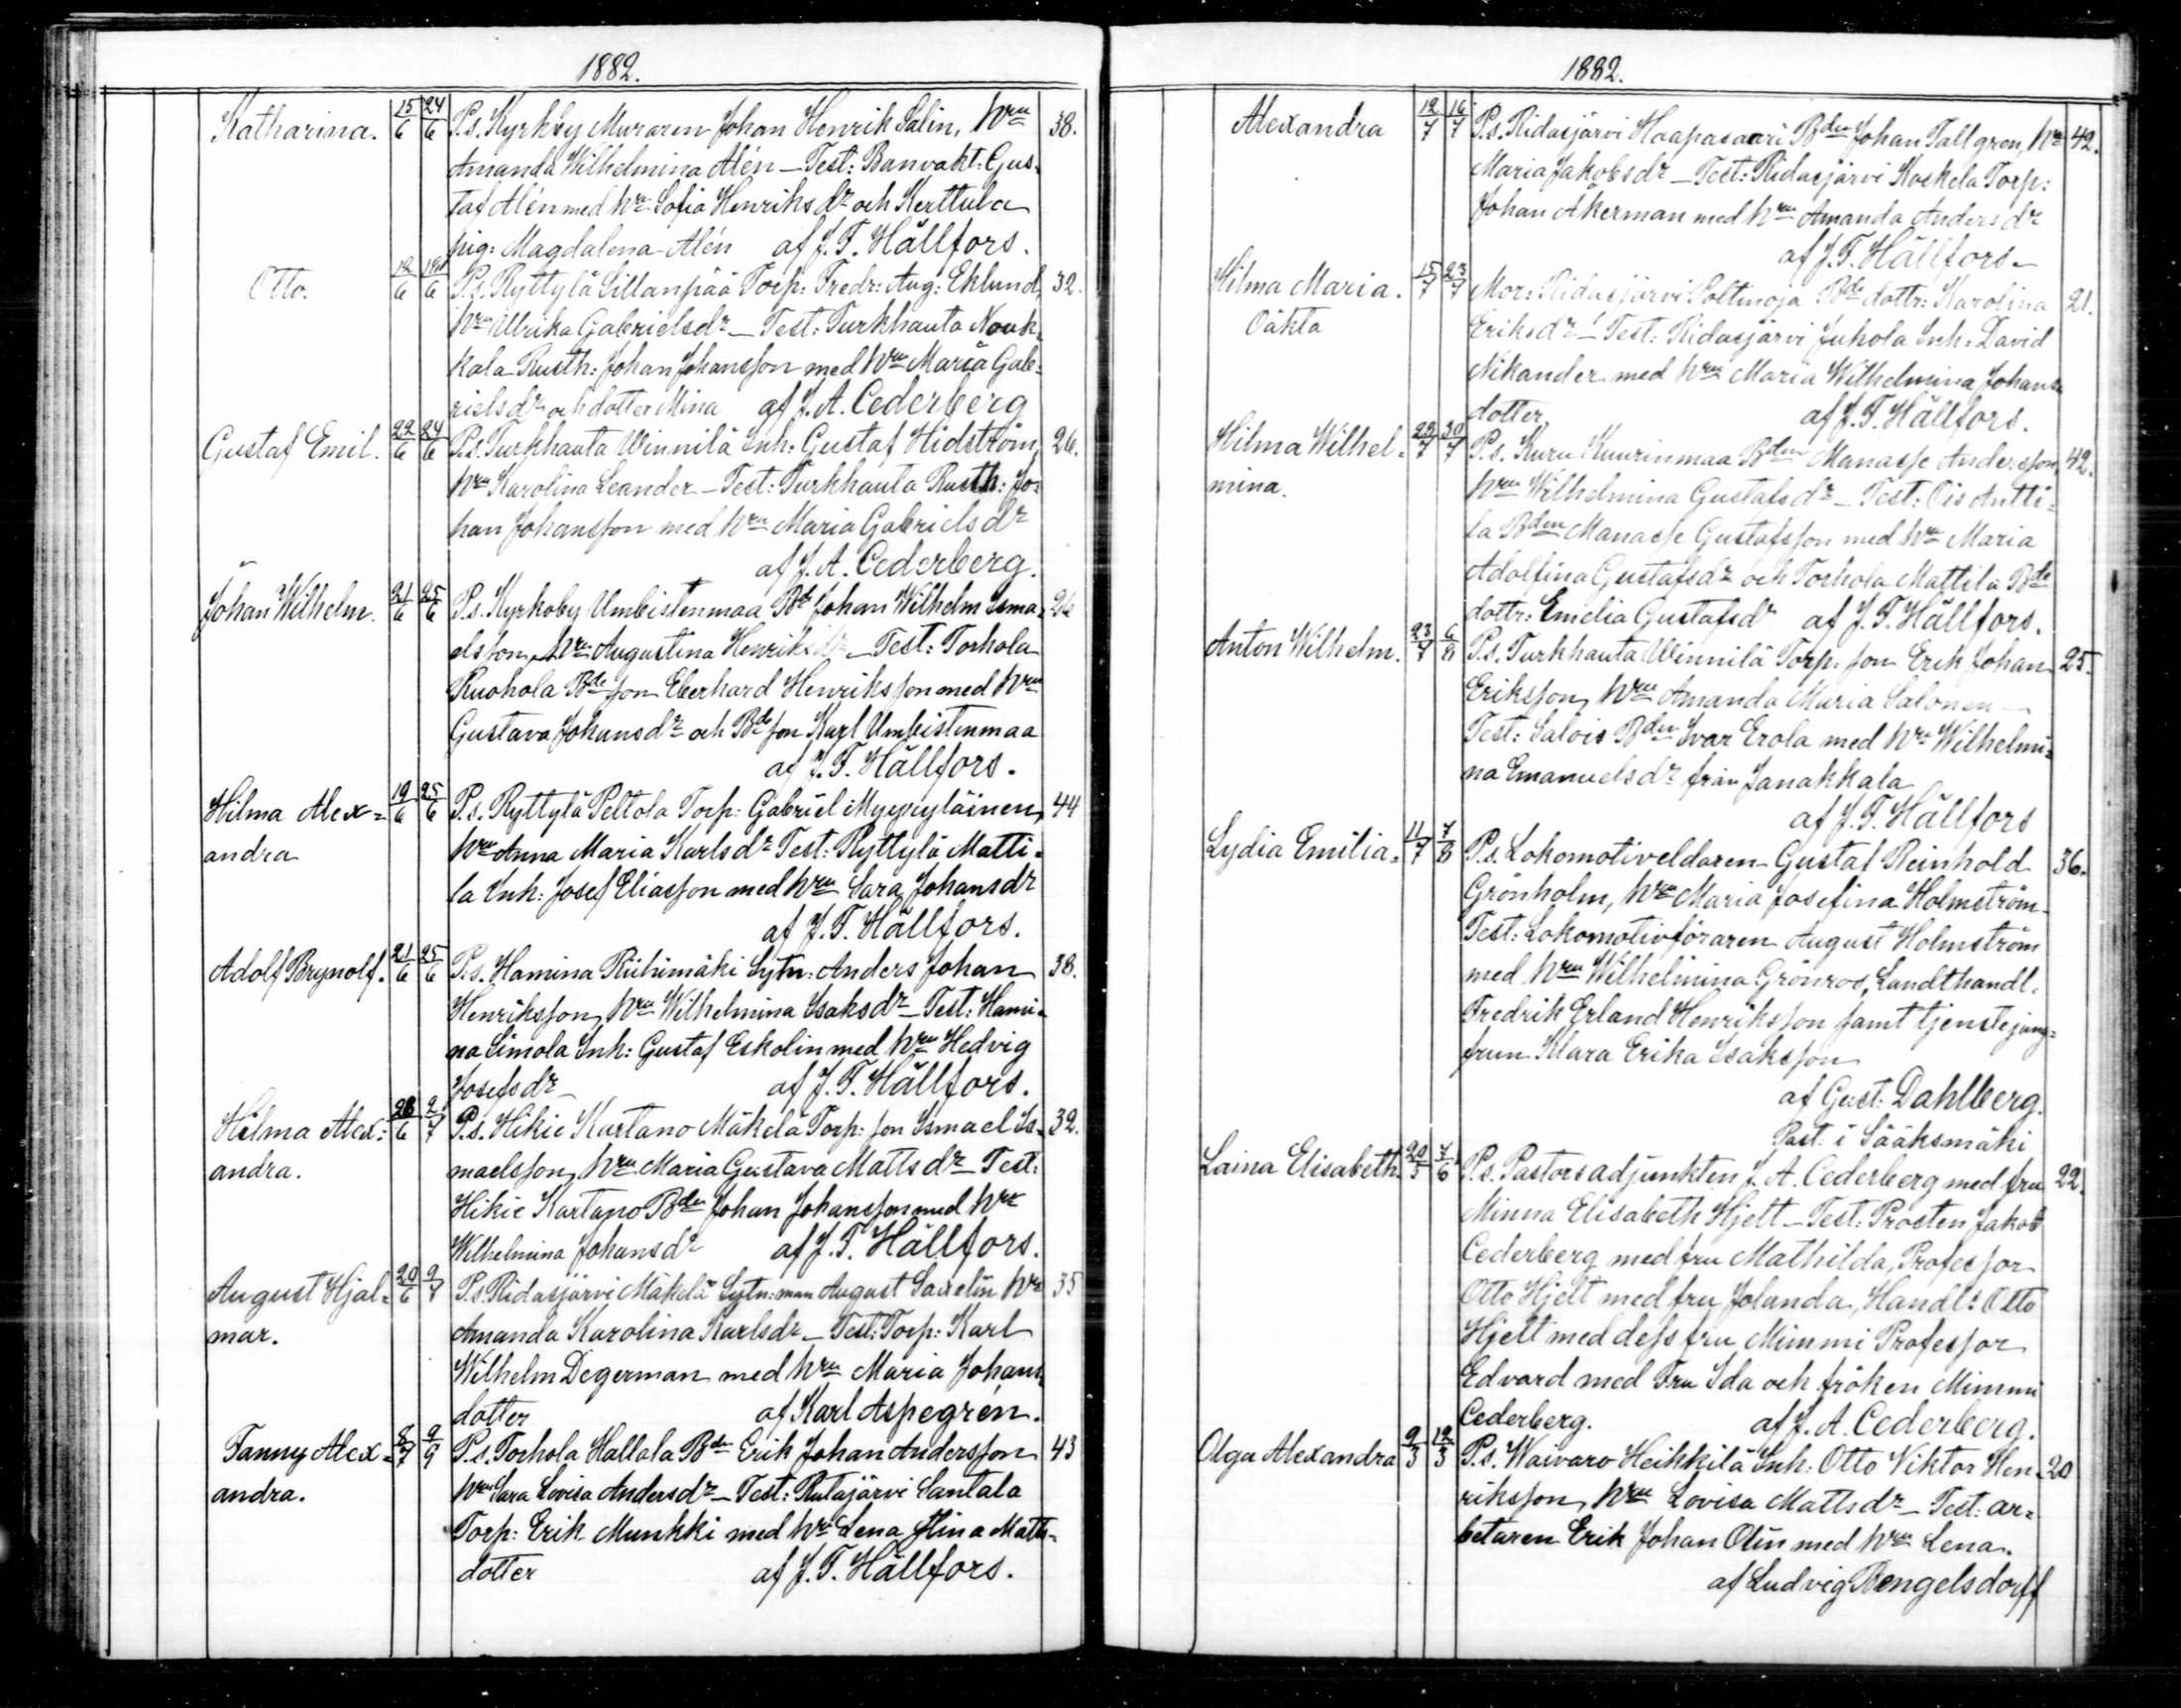 1882.
Katharina. 15/6 24/6 P.s. Kyrkby Muraren Johan Henrik Salin, hru 38.
Amanda Wilhelmina Alén – Test: Banvakt: Gus-
taf Alén med hru Sofia Henriksdr och Kerttula
pig: Magdalena Alén af J. F. Hällfors.
Otto. 12/6 P.s. Ryttylä Sillanpää Torp: Fredr: Aug: Eklund, 32.
hru Ulrika Gabrielsdr – Test: Turkhauta Nouk-
kala Rusth: Johan Johansson med hru Maria Gab-
rielsdr och dotter Mina af J. A. Cederberg
Gustaf Emil. 22/6 24/6 P.s. Turkhauta Winnilä Inh: Gustaf Hidström, 26.
hru Karolina Leander – Test: Turkhauta Rusth: Jo-
han Johansson med hru Maria Gabrielsdr
af J. A. Cederberg.
Johan Wilhelm. 21/6 25/6 P.s. Kyrkoby Umbistenmaa Bde Johan Wilhelm Isma- 26
elsson, hru Augustina Henriksdr – Test: Torhola
Ruohola Bde son Eberhard Henriksson med hru
Gustava Johansdr och Bde son Karl Umbistenmaa
af J. F. Hällfors.
Hilma Alex= 19/6 25/6 P.s. Ryttylä Peltola Torp: Gabriel Myyryläinen, 44
andra hru Anna Maria Karlsdr Test: Ryttylä Matti-
la Inh: Josef Eliasson med hru Sara Johansdr
af J. F. Hällfors.
Adolf Brynolf. 21/6 25/6 P.s. Hamina Riihimäki Sytn: Anders Johan 38.
Henriksson, hru Wilhelmina Isaksdr – Test: Hami-
na Simola Inh: Gustaf Eskolin med hru Hedvig
Josefsdr – af J. F. Hällfors.
Hilma Alex= 28/6 2/7 P.s. Hikie Kartano Mäkelä Torp: son Ismael Is- 32.
andra. maelsson, hru Maria Gustava Mattsdr – Test:
Hikie Kartano Bden Johan Johansson med hru
Wilhelmina Johansdr af J. F. Hällfors.
August Hjal= 20/6 9/7 P.s. Ridasjärvi Mäkelä Sytn: man August Saxelin hru 35
mar. Amanda Karolina Karlsdr – Test: Torp: Karl
Wilhelm Degerman med hru Maria Johans-
dotter af Karl Aspegrén.
Fanny Alex= 8/7 9/9 P.s. Torhola Hallala Bde Erik Johan Andersson 43
andra. hru Sara Lovisa Andersdr – Test: Rutajärvi Santala
Torp: Erik Munkki med hru Lena Stina Matts-
dotter af J. F. Hällfors.
1882.
Alexandra 12/7 16/7 P.s. Ridasjärvi Haapasaari Bden Johan Tallgren, hru 42.
Maria Jakobsdr – Test: Ridasjärvi Koskela Torp:
Johan Åkerman med hru Amanda Andersdr
af J. F. Hällfors –
Hilma Maria. 15/7 23/7 Mor: Ridasjärvi Soltinoja Bde dottr: Karolina 21.
Oäkta Eriksdr – Test: Ridasjärvi Juhola Inh: David
Nikander med hru Maria Wilhelmina Johans-
dotter af J. F. Hällfors.
Hilma Wilhel- 22/7 30/7 P.s. Kuru Kuurinmaa Bden Manasse Andersson, 42.
mina. hru Wilhelmina Gustafsdr – Test: Ois Antti-
la Bden Manasse Gustafsson med hru Maria
Adolfina Gustafsdr och Torhola Mattila Bde
dottr: Emelia Gustafsdr af J. F. Hällfors.
Anton Wilhelm. 23/7 6/8 P.s. Turkhauta Winnilä Torp: son Erik Johan 25.
Eriksson, hru Amanda Maria Salonen –
Test: Salois Bden Ivar Erola med hru Wilhelmi-
na Emanuelsdr från Janakkala
af J. F. Hällfors
Lydia Emilia. 11/7 7/8 P.s. Lokomotiveldaren Gustaf Reinhold 36.
Grönholm, hru Maria Josefina Holmström –
Test: Lokomotivföraren August Holmström
med hru Wilhelmina Grönroos, Landthandl.
Fredrik Erland Henriksson samt tjenstejung-
frun Klara Erika Isaksson
af Gust: Dahlberg.
Past: i Sääksmäki
Laina Elisabeth. 20/5 7/6 P.s. Pastorsadjunkten J. A. Cederberg med fru 22.
Minna Elisabeth Hjelt – Test: Prosten Jakob
Cederberg med fru Mathilda, Professor
Otto Hjelt med fru Jolanda, Handl: Otto
Hjelt med dess fru Mimmi Professor
Edvard med Fru Ida och fröken Mimmi
Cederberg. af J. A. Cederberg.
Olga Alexandra 9/3 12/3 P.s. Waivaro Heikkilä Inh: Otto Viktor Hen- 20
riksson, hru Lovisa Mattsdr – Test: ar=
betaren Erik Johan Olin med hru Lena.
af Ludvig Bengelsdorff